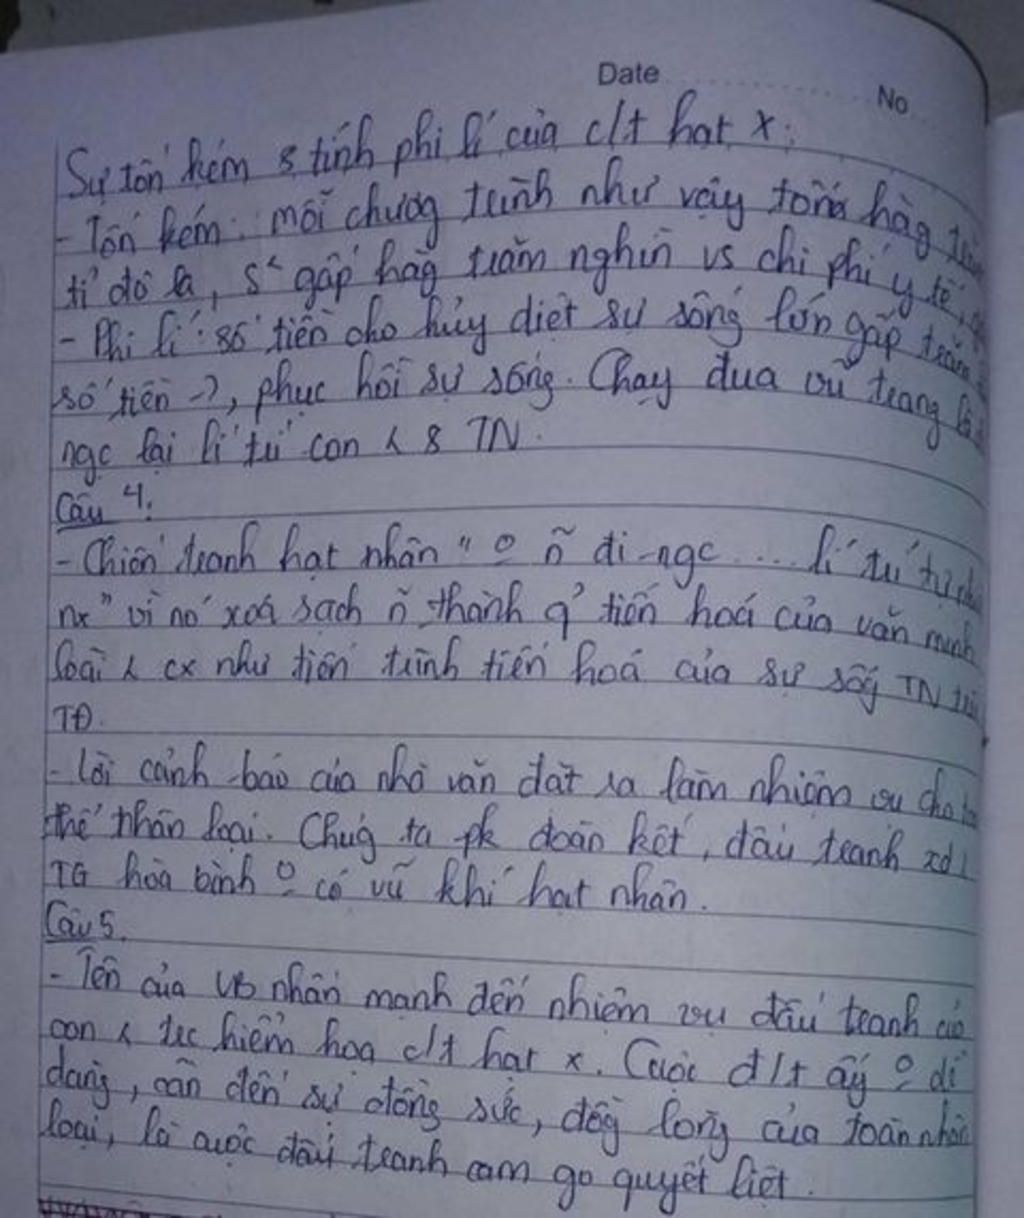 Date
No
Sự tốn kém & tính phi lí của c/t hạt x:
- Tốn kém: mỗi chương trình như vậy tốn hàg
tỉ đô la, s² gấp hàg trăm nghìn vs chi phí y tế,
- Phi lí: số tiền cho hủy diệt sự sống lớn gấp trăm
số tiền →, phục hồi sự sống. Chạy đua vũ trang là
ngc lại lí trí con < & TN.
Câu 4:
- Chiến tranh hạt nhân " o n~ đi ngc ... lí trí tự
nx" vì nó xoá sạch n~ thành q' tiến hoá của văn minh
loài < cx như tiến trình tiến hoá của sự sốg TN
TĐ.
- Lời cảnh báo của nhà văn đặt ra làm nhiệm vụ cho
thể nhân loại. Chúg ta pk đoàn kết, đấu tranh xd 1
TG hoà bình o có vũ khí hạt nhân.
Câu 5.
- Tên của VB nhấn mạnh đến nhiệm vụ đấu tranh của
con < trc hiểm hoạ c/t hạt x. Cuộc đ/t ấy o dễ
dàng, cần đến sự đồng sức, đồg lòng của toàn nhân
loại, là cuộc đấu tranh cam go quyết liệt.